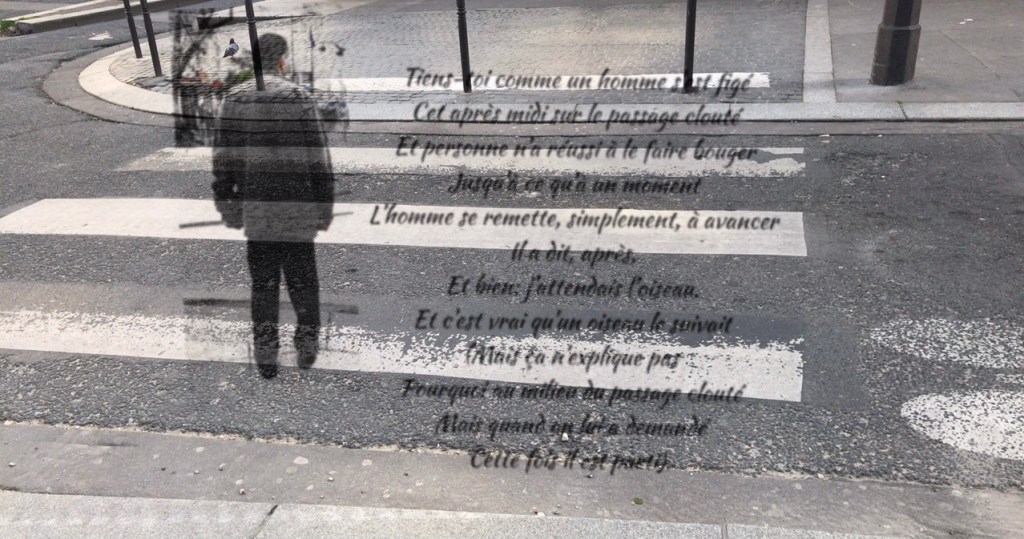 Tiens-toi comme un homme s'est figé
Cet après midi sur le passage clouté
Et personne n'a réussi à le faire bouger
Jusqu'à ce qu'à un moment
L'homme se remette, simplement, à avancer
Il a dit, après,
Et bien: j'attendais l'oiseau.
Et c'est vrai qu'un oiseau le suivait
(Mais ça n'explique pas
Pourquoi au milieu du passage clouté
Mais quand on lui a demandé
Cette fois il est parti).